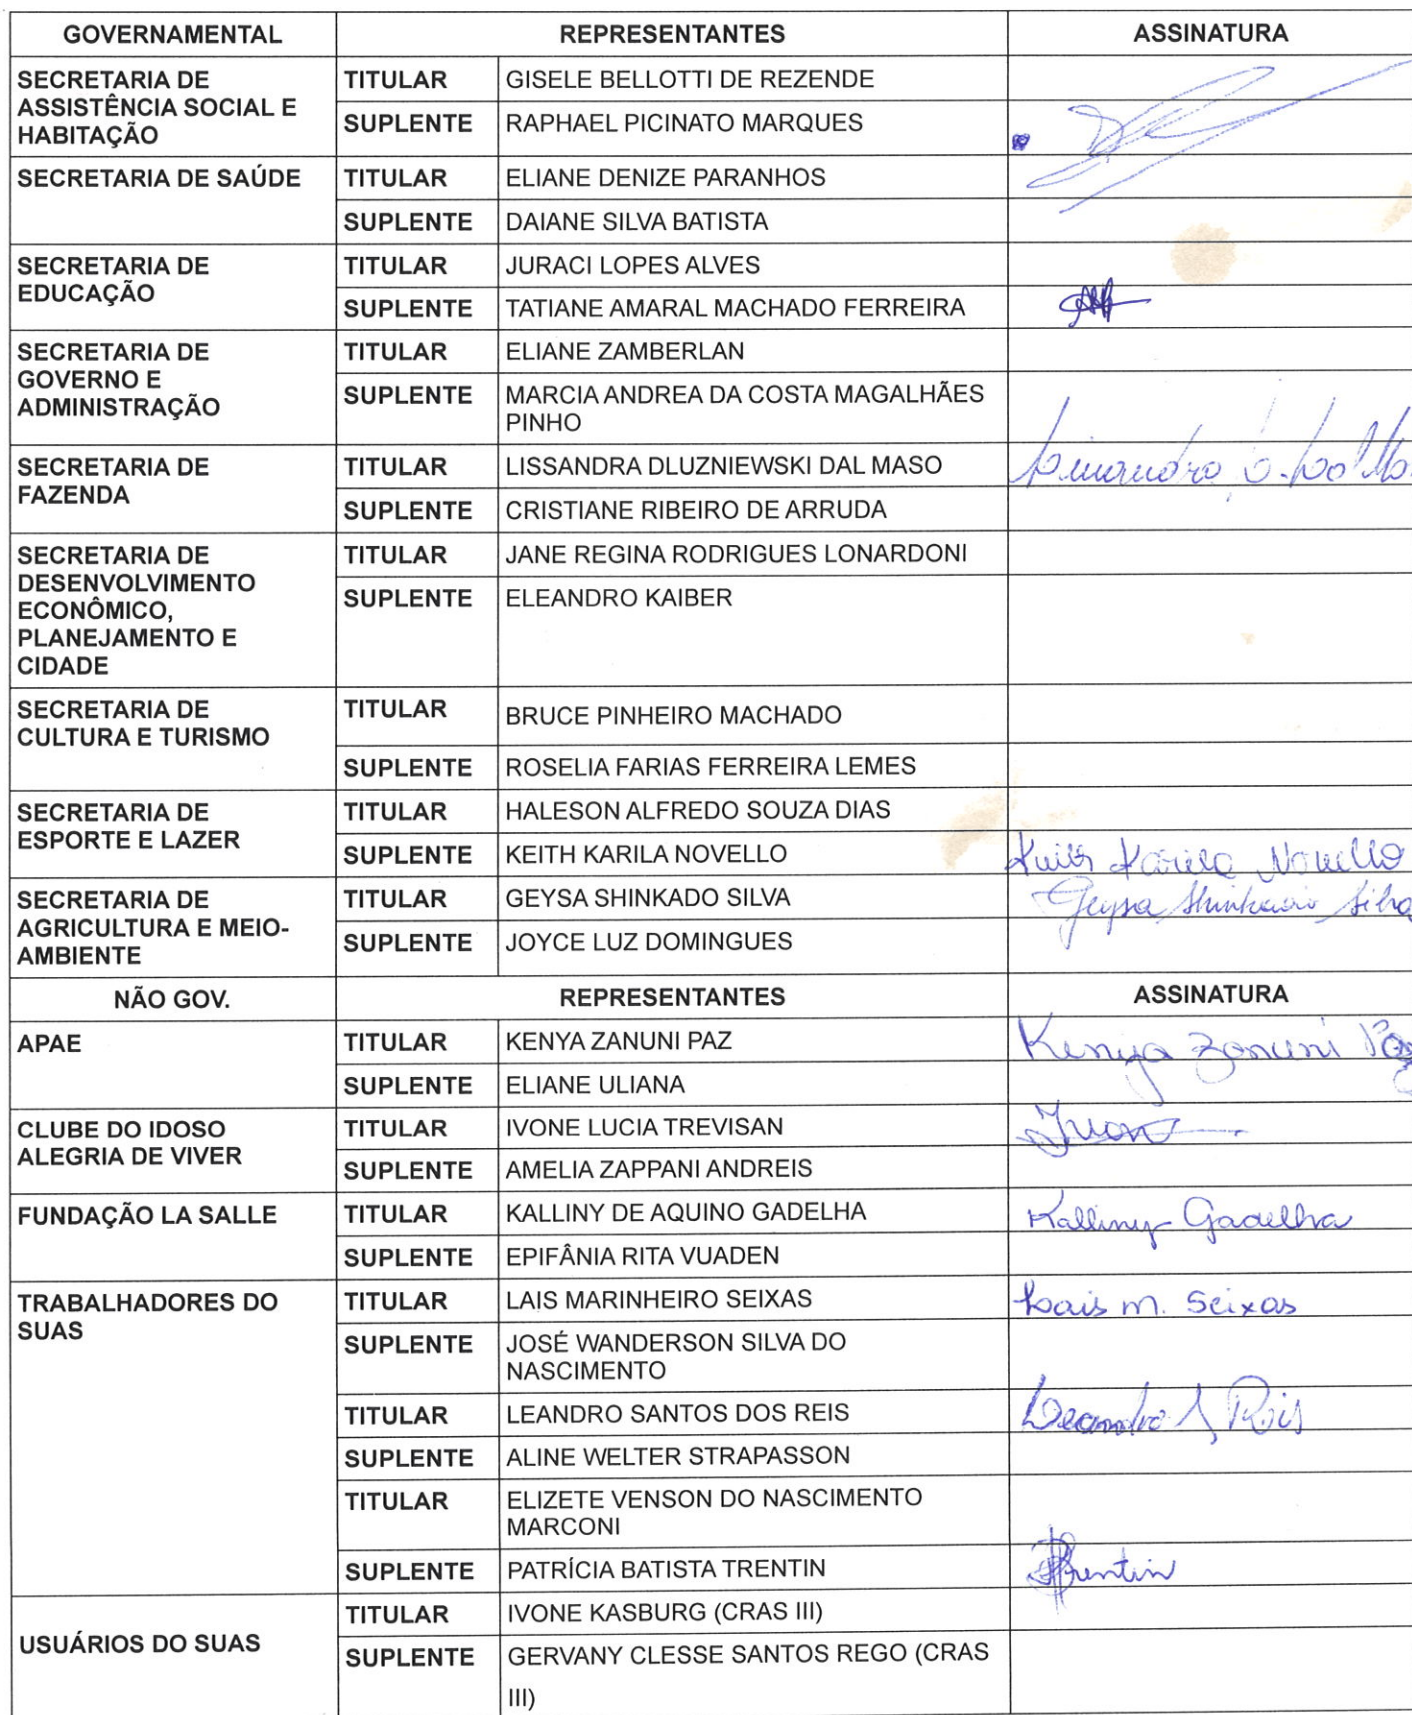 GOVERNAMENTAL REPRESENTANTES ASSINATURA
SECRETARIA DE
ASSISTÊNCIA SOCIAL E
HABITAÇÃO
TITULAR GISELE BELLOTTI DE REZENDE
SUPLENTE RAPHAEL PICINATO MARQUES
SECRETARIA DE SAÚDE TITULAR ELIANE DENIZE PARANHOS
SUPLENTE DAIANE SILVA BATISTA
SECRETARIA DE
EDUCAÇÃO
TITULAR JURACI LOPES ALVES
SUPLENTE TATIANE AMARAL MACHADO FERREIRA
SECRETARIA DE
GOVERNO E
ADMINISTRAÇÃO
TITULAR ELIANE ZAMBERLAN
SUPLENTE MARCIA ANDREA DA COSTA MAGALHÃES
PINHO
SECRETARIA DE
FAZENDA
TITULAR LISSANDRA DLUZNIEWSKI DAL MASO
SUPLENTE CRISTIANE RIBEIRO DE ARRUDA
SECRETARIA DE
DESENVOLVIMENTO
ECONÔMICO,
PLANEJAMENTO E
CIDADE
TITULAR JANE REGINA RODRIGUES LONARDONI
SUPLENTE ELEANDRO KAIBER
SECRETARIA DE
CULTURA E TURISMO
TITULAR BRUCE PINHEIRO MACHADO
SUPLENTE ROSELIA FARIAS FERREIRA LEMES
SECRETARIA DE
ESPORTE E LAZER
TITULAR HALESON ALFREDO SOUZA DIAS
SUPLENTE KEITH KARILA NOVELLO Keith Karila Novello
SECRETARIA DE
AGRICULTURA E MEIO-
AMBIENTE
TITULAR GEYSA SHINKADO SILVA Geysa Shinkado Silva
SUPLENTE JOYCE LUZ DOMINGUES
NÃO GOV. REPRESENTANTES ASSINATURA
APAE TITULAR KENYA ZANUNI PAZ Kenya Zanuni Paz
SUPLENTE ELIANE ULIANA
CLUBE DO IDOSO
ALEGRIA DE VIVER
TITULAR IVONE LUCIA TREVISAN Ivone
SUPLENTE AMELIA ZAPPANI ANDREIS
FUNDAÇÃO LA SALLE TITULAR KALLINY DE AQUINO GADELHA Kalliny Gadelha
SUPLENTE EPIFÂNIA RITA VUADEN
TRABALHADORES DO
SUAS
TITULAR LAIS MARINHEIRO SEIXAS Lais M. Seixas
SUPLENTE JOSÉ WANDERSON SILVA DO
NASCIMENTO
TITULAR LEANDRO SANTOS DOS REIS Leandro S Reis
SUPLENTE ALINE WELTER STRAPASSON
TITULAR ELIZETE VENSON DO NASCIMENTO
MARCONI
SUPLENTE PATRÍCIA BATISTA TRENTIN Trentin
USUÁRIOS DO SUAS
TITULAR IVONE KASBURG (CRAS III)
SUPLENTE GERVANY CLESSE SANTOS REGO (CRAS
III)